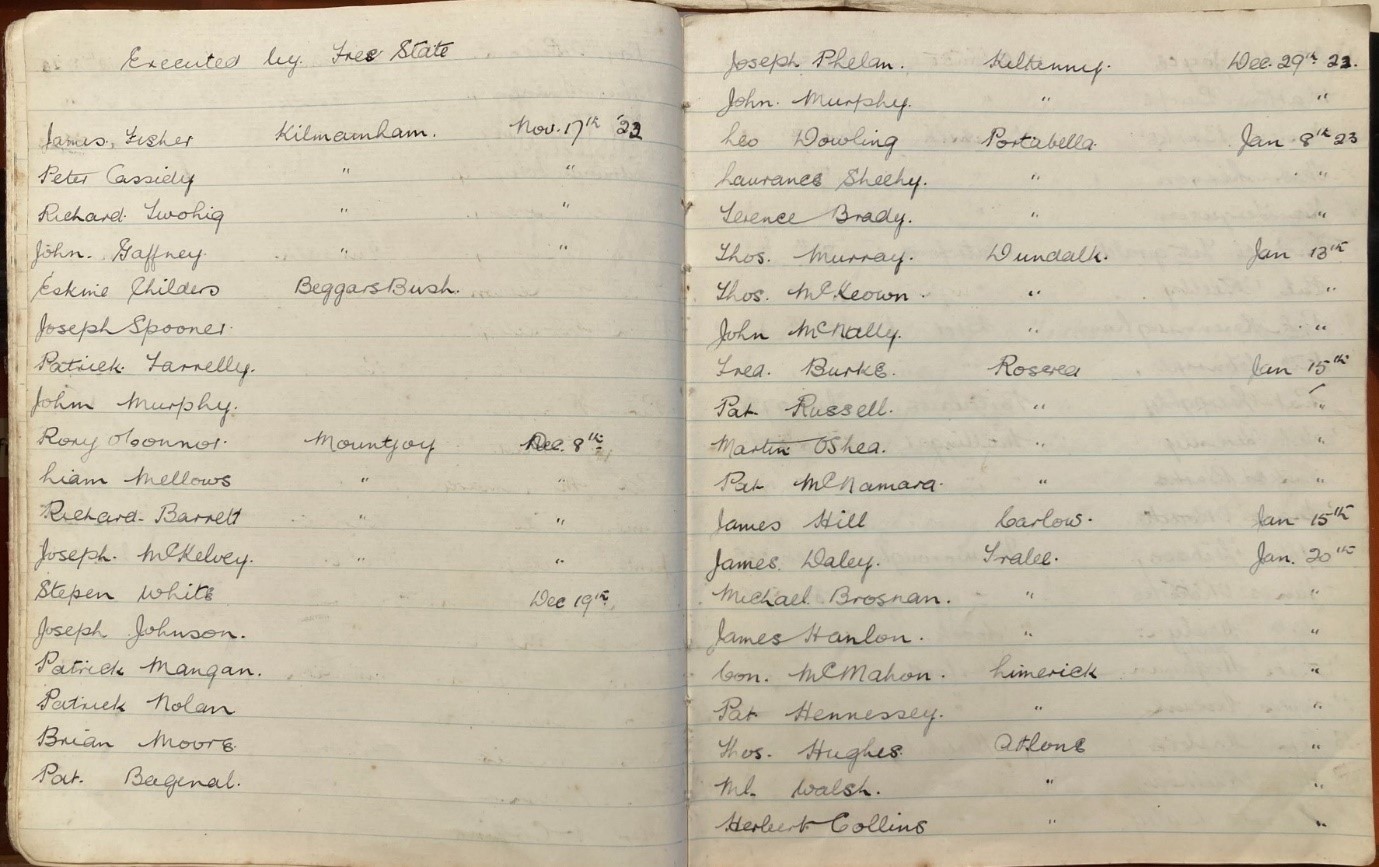 Executed by Free State
James Fisher Kilmainham. Nov. 17th '22
Peter Cassidy " "
Richard Twohig " "
John. Gaffney. " "
Eskine Childers Beggars Bush.
Joseph Spooner.
Patrick Farrelly.
John Murphy.
Rory O'Connor. Mountjoy Dec. 8th
Liam Mellows " "
Richard Barrett " "
Joseph. McKelvey. " "
Stepen White Dec 19th
Joseph Johnson.
Patrick Mangan.
Patrick Nolan
Brian Moore.
Pat. Bagenal.
Joseph Phelan. Kilkenny. Dec. 29th 22.
John. Murphy. " "
Leo Dowling Portabella. Jan 8th 23
Laurance Sheehy. " "
Terence Brady. " "
Thos. Murray. Dundalk. Jan 13th
Thos. McKeown. " "
John McNally. " "
Fred. Burke. Roscrea Jan 15th
Pat Russell. " "
Martin OShea. " "
Pat McNamara. " "
James Hill Carlow. Jan 15th
James. Daley. Tralee. Jan. 20th
Michael Brosnan. " "
James Hanlon. " "
Con. McMahon. Limerick "
Pat Hennessey. " "
Thos. Hughes. Athlone "
Ml. Walsh. " "
Herbert Collins " "